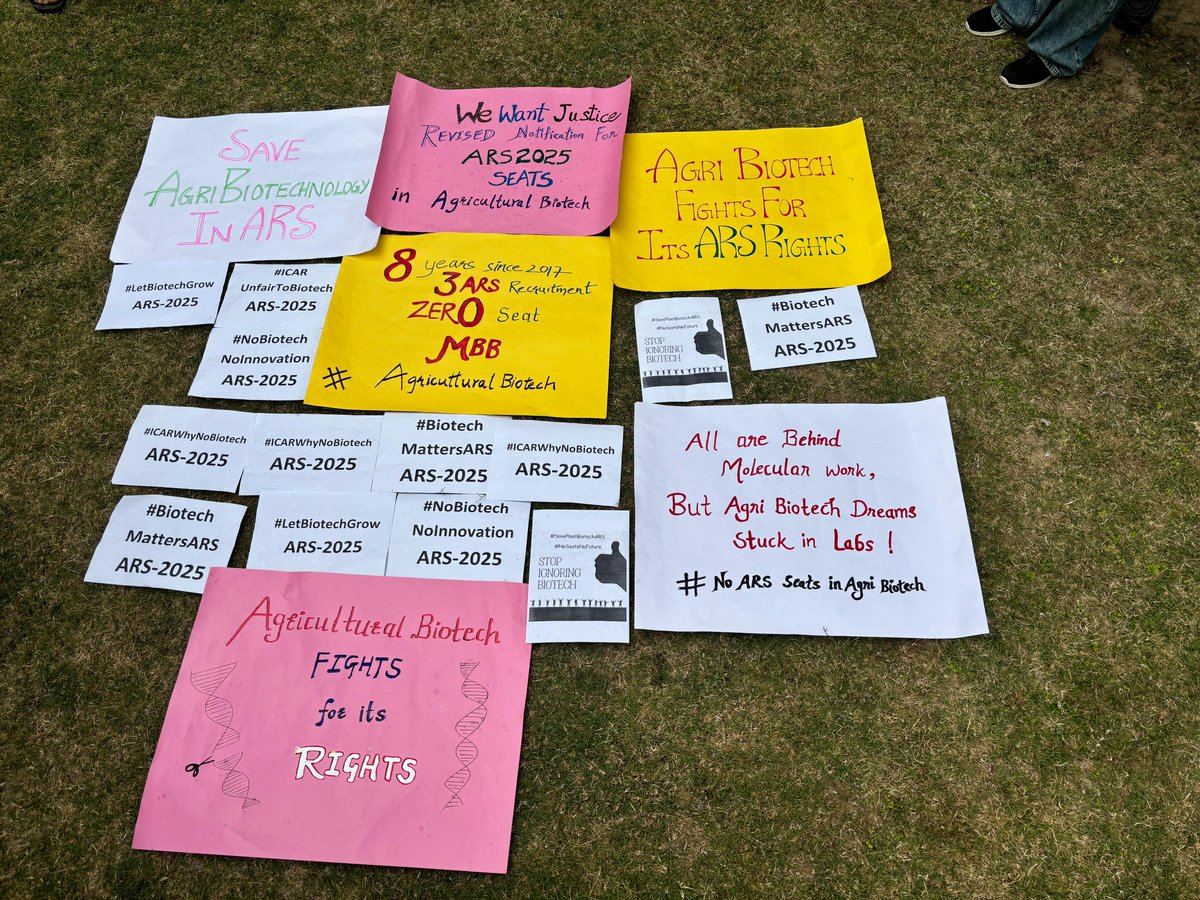 SAVE
AGRI BIOTECHNOLOGY
IN ARS
WE WANT JUSTICE
REVISED Notification For
ARS2025
SEATS
in Agricultural Biotech
AGRI BIOTECH
FIGHTS FOR
ITS ARS RIGHTS
#LetBiotechGrow
ARS-2025
#ICAR
UnfairToBiotech
ARS-2025
#NoBiotech
NoInnovation
ARS-2025
8 years since 2017
3 ARS Recruitment
ZERO Seat
MBB
# Agricultural Biotech
#SavePlantBiotechARS
#NoSeatsNoFuture
STOP
IGNORING
BIOTECH
#Biotech
MattersARS
ARS-2025
#ICARWhyNoBiotech
ARS-2025
#ICARWhyNoBiotech
ARS-2025
#Biotech
MattersARS
ARS-2025
#ICARWhyNoBiotech
ARS-2025
All are Behind
Molecular work,
But Agri Biotech Dreams
Stuck in Labs !
# No ARS Seats in Agri Biotech
#Biotech
MattersARS
ARS-2025
#LetBiotechGrow
ARS-2025
#NoBiotech
NoInnovation
ARS-2025
#SavePlantBiotechARS
#NoSeatsNoFuture
STOP
IGNORING
BIOTECH
Agricultural Biotech
FIGHTS
for its
RIGHTS